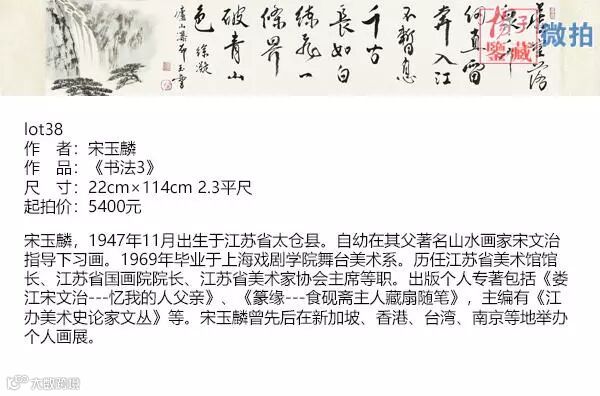 落
直雷
奔入江
不暫息
千古
長如白
練飛一
條界
破青山
色
徐凝
廬山瀑布 玉麟
揚子
鑒藏
微拍
lot38
作 者：宋玉麟
作 品：《书法3》
尺 寸：22cm×114cm 2.3平尺
起拍价：5400元
宋玉麟，1947年11月出生于江苏省太仓县。自幼在其父著名山水画家宋文治
指导下习画。1969年毕业于上海戏剧学院舞台美术系。历任江苏省美术馆馆
长、江苏省国画院院长、江苏省美术家协会主席等职。出版个人专著包括《娄
江宋文治---忆我的人父亲》、《篆缘---食砚斋主人藏扇随笔》，主编有《江
办美术史论家文丛》等。宋玉麟曾先后在新加坡、香港、台湾、南京等地举办
个人画展。
大数跨境